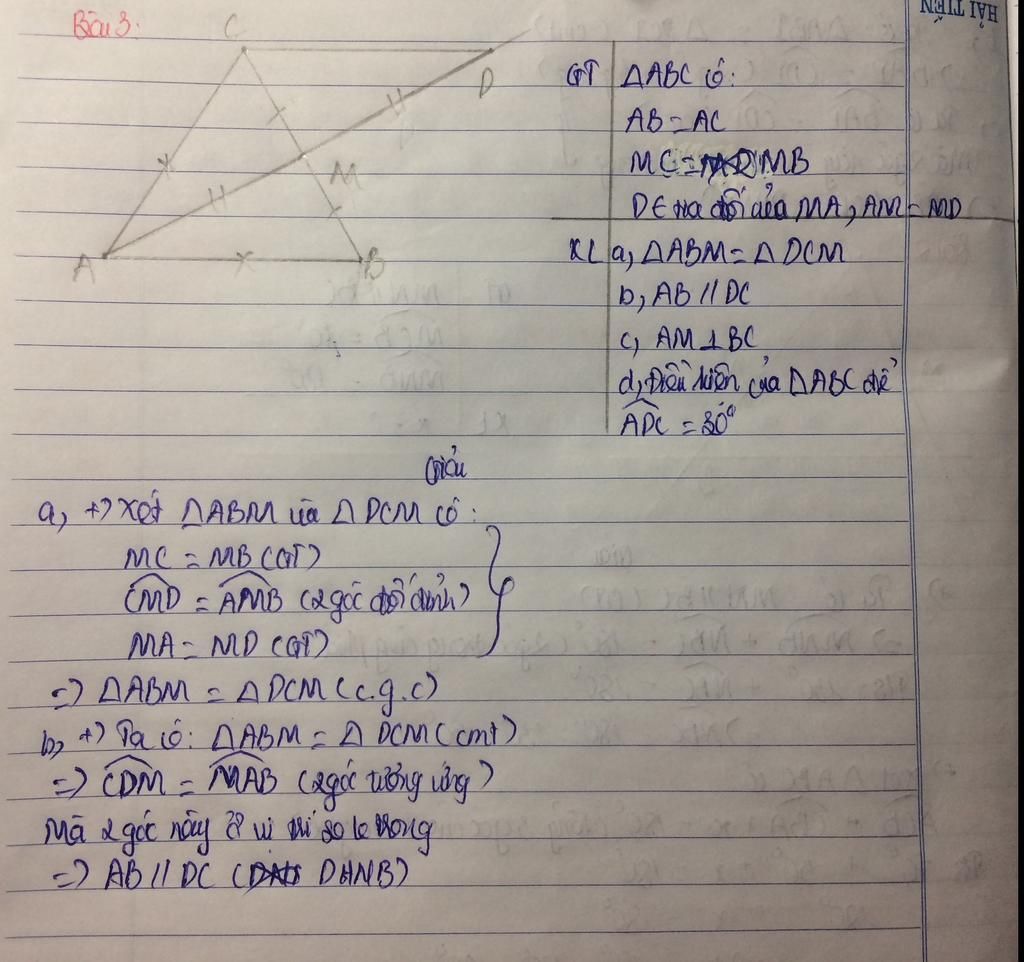 HẢI TIẾN
Bài 3:
C
D
M
A
B
GT ΔABC có:
AB = AC
MC = MB
D ∈ tia đối của MA, AM = MD
KL a, ΔABM = ΔDCM
b, AB // DC
c, AM ⊥ BC
d, Điều kiện của ΔABC để
ADC = 30°
Giải
a, +) Xét ΔABM và ΔDCM có:
MC = MB (GT)
CMD = AMB (2 góc đối đỉnh)
MA = MD (GT)
=> ΔABM = ΔDCM (c.g.c)
b, +) Ta có: ΔABM = ΔDCM (cmt)
=> CDM = MAB (2 góc tương ứng)
Mà 2 góc này ở vị trí so le trong
=> AB // DC (DHNB)